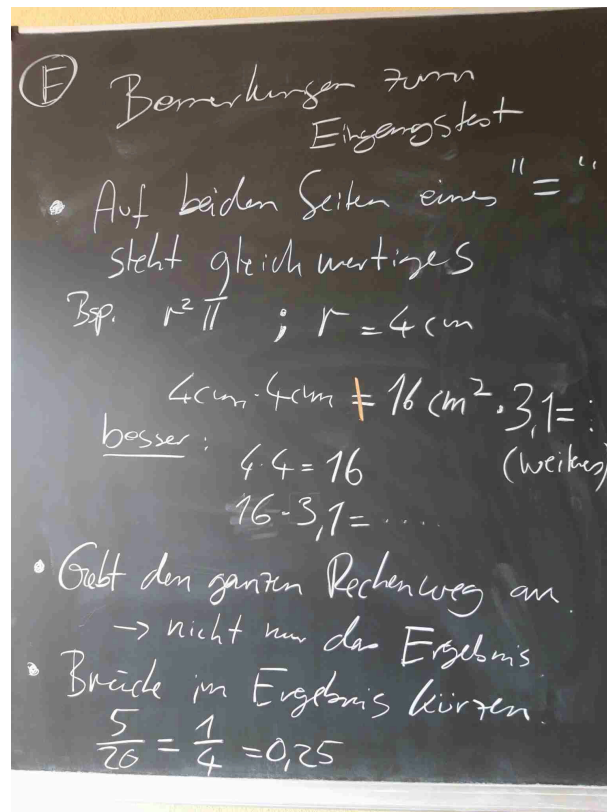 E Bemerkungen zum
Eingangstest
• Auf beiden Seiten eines "="
steht gleichwertiges
Bsp. r²π ; r = 4cm
4cm·4cm ≠ 16cm²·3,1=:
besser: (weiteres)
4·4=16
16·3,1=.....
• Gebt den ganzen Rechenweg an.
→ nicht nur das Ergebnis
• Brüche im Ergebnis kürzen.
5/20 = 1/4 = 0,25